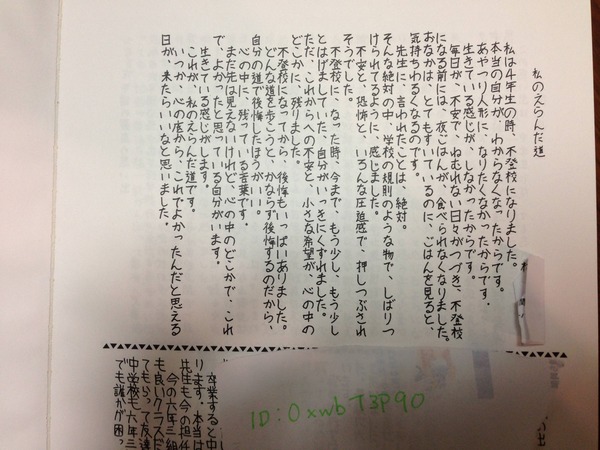 私のえらんだ道
私は4年生の時、不登校になりました。
本当の自分が、わからなくなったからです。
あやつり人形に、なりたくなかったからです。
生きている感じが、しなかったからです。
毎日が、不安で、ねむれない日々がつづき、不登校
になる前には、夜ごはんが、食べられなくなりました。
おなかは、とてもすいているのに、ごはんを見ると、
気持ちわるくなるのです。
先生に、言われたことは、絶対。
そんな絶対の中、学校の規則のような物で、しばりつ
けられてるように、感じました。
不安と、恐怖と、いろんな圧迫感で、押しつぶされ
そうでした。
不登校に、なった時、今まで、もう少し、もう少し
とはげましていた、自分がいっきにくずれました。
ただ、これからへの不安と、小さな希望が、心の中の
どこかに、残りました。
不登校になってから、後悔もいっぱいありました。
どんな道を歩こうと、かならず後悔するのだから、
自分の道で後悔したほうがいい。
心の中に、残っている言葉です。
まだ先は見えないけれど、心の中のどこかで、これ
で、よかったと思っている自分がいます。
生きている感じがします。
これが、私のえらんだ道です。
いつか、心の底から、これでよかったんだと思える
日が、来たらいいなと思いました。
ID:0xwbT3P90
卒業すると中
ります。本当は
先生も今の担任
今の六年三組
も良いクラスだ
てもらって友達
中学校も六年三
でも誰かが困っ